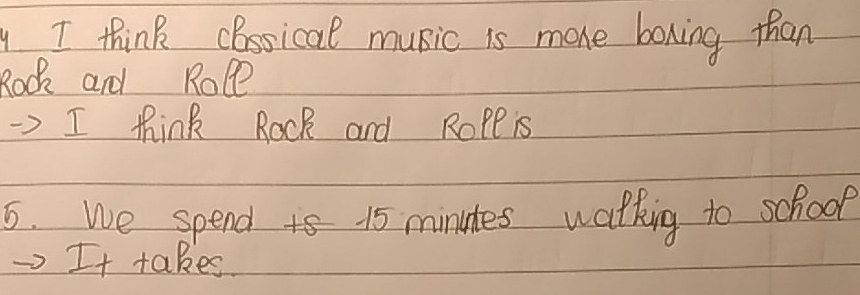 4 I think classical music is more boring than
Rock and Roll
-> I think Rock and Roll is
5. We spend ts 15 minutes walking to school
-> It takes